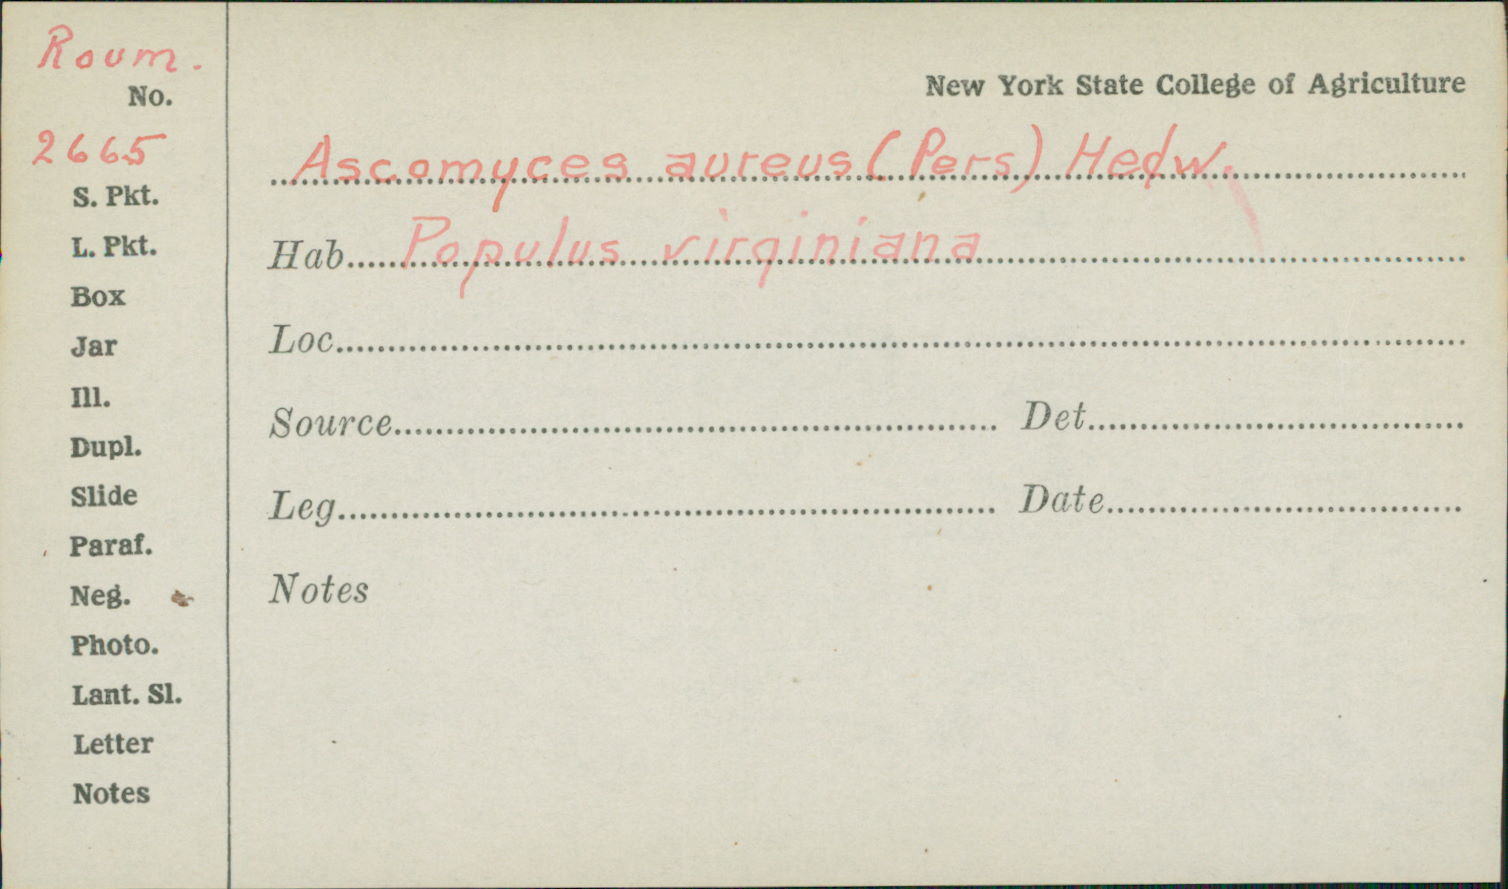 Roum.
No.
2665
S. Pkt.
L. Pkt.
Box
Jar
Ill.
Dupl.
Slide
Paraf.
Neg.
Photo.
Lant. Sl.
Letter
Notes
New York State College of Agriculture
Ascomyces aureus (Pers) Hedw.
Hab Populus virginiana
Loc
Source Det
Leg Date
Notes